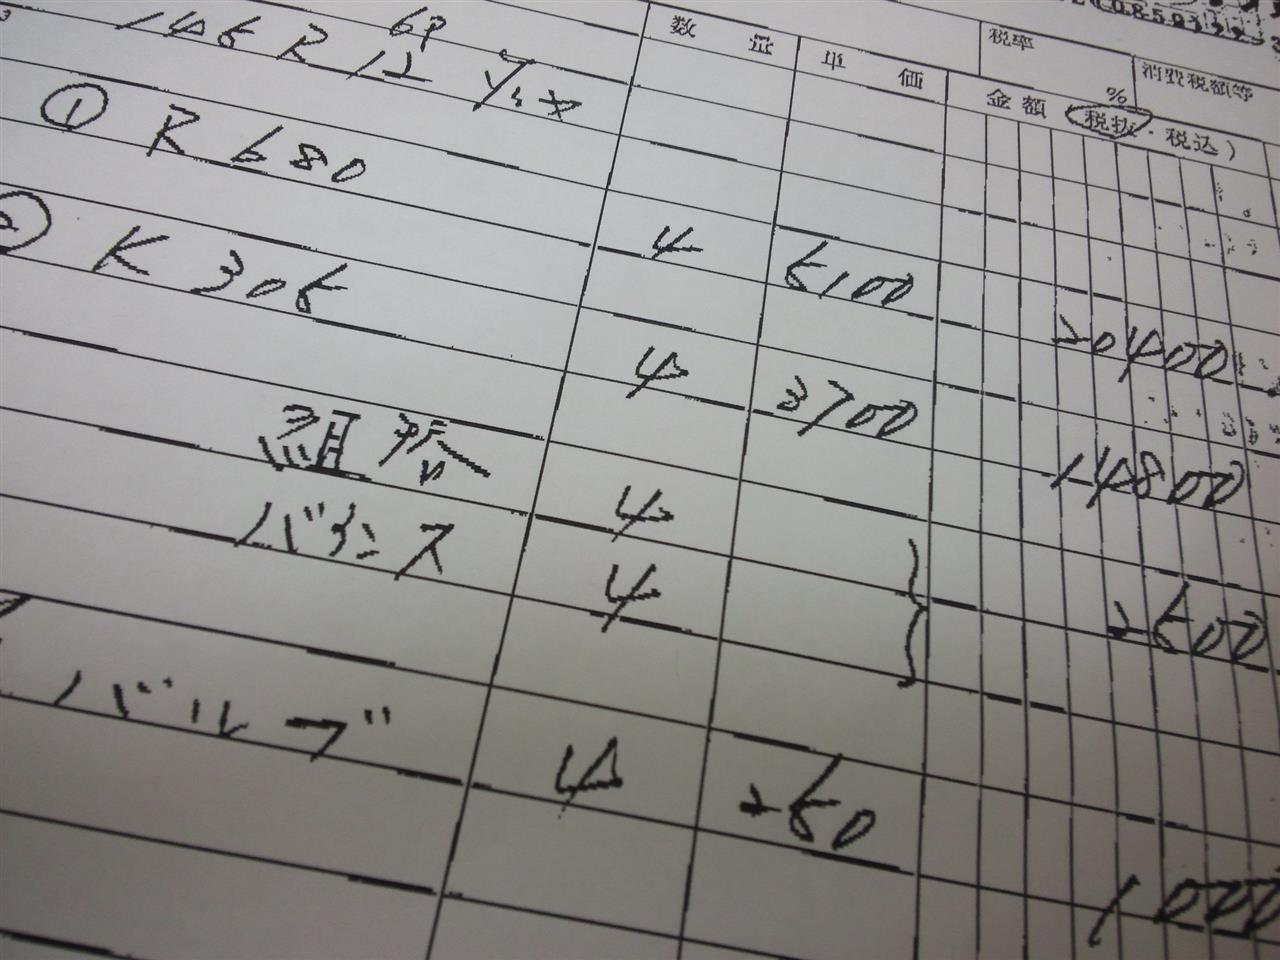 数量 単価 税率 % 消費税額等
金額 (税抜・税込)
145R12 6P タイヤ
① R680 4 5100 20400
② K305 4 3700 14800
組替 4
バランス 4 2500
バルブ 4 250 1000